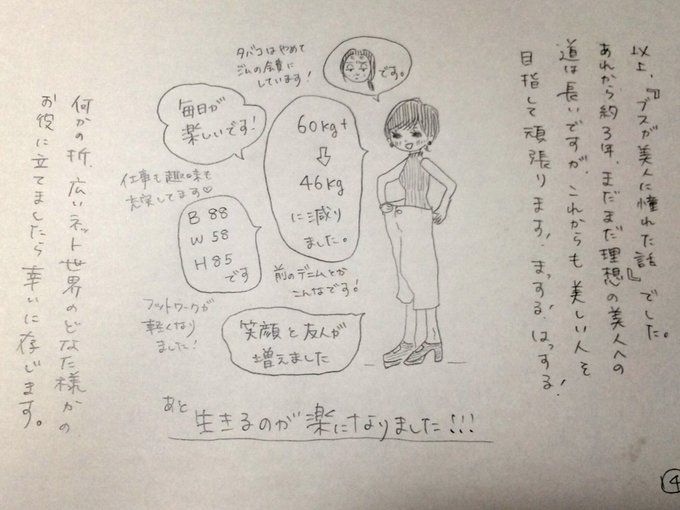 以上、『ブスが美人に憧れた話』でした。
あれから約3年、まだまだ理想の美人への
道は長いですが、これからも美しい人を
目指して頑張ります！まっする！はっする！
です。
タバコはやめて
ジムの会費に
しています！
60kg+
⇩
46kg
に減り
ました。
毎日が
楽しいです！
仕事も趣味も
充実してます♡
B 88
W 58
H 85
です
前のデニムとか
こんなです！
フットワークが
軽くなり
ました！
笑顔と友人が
増えました
あと
生きるのが楽になりました!!!
何かの折、広いネット世界のどなた様かの
お役に立てましたら幸いに存じます。
4